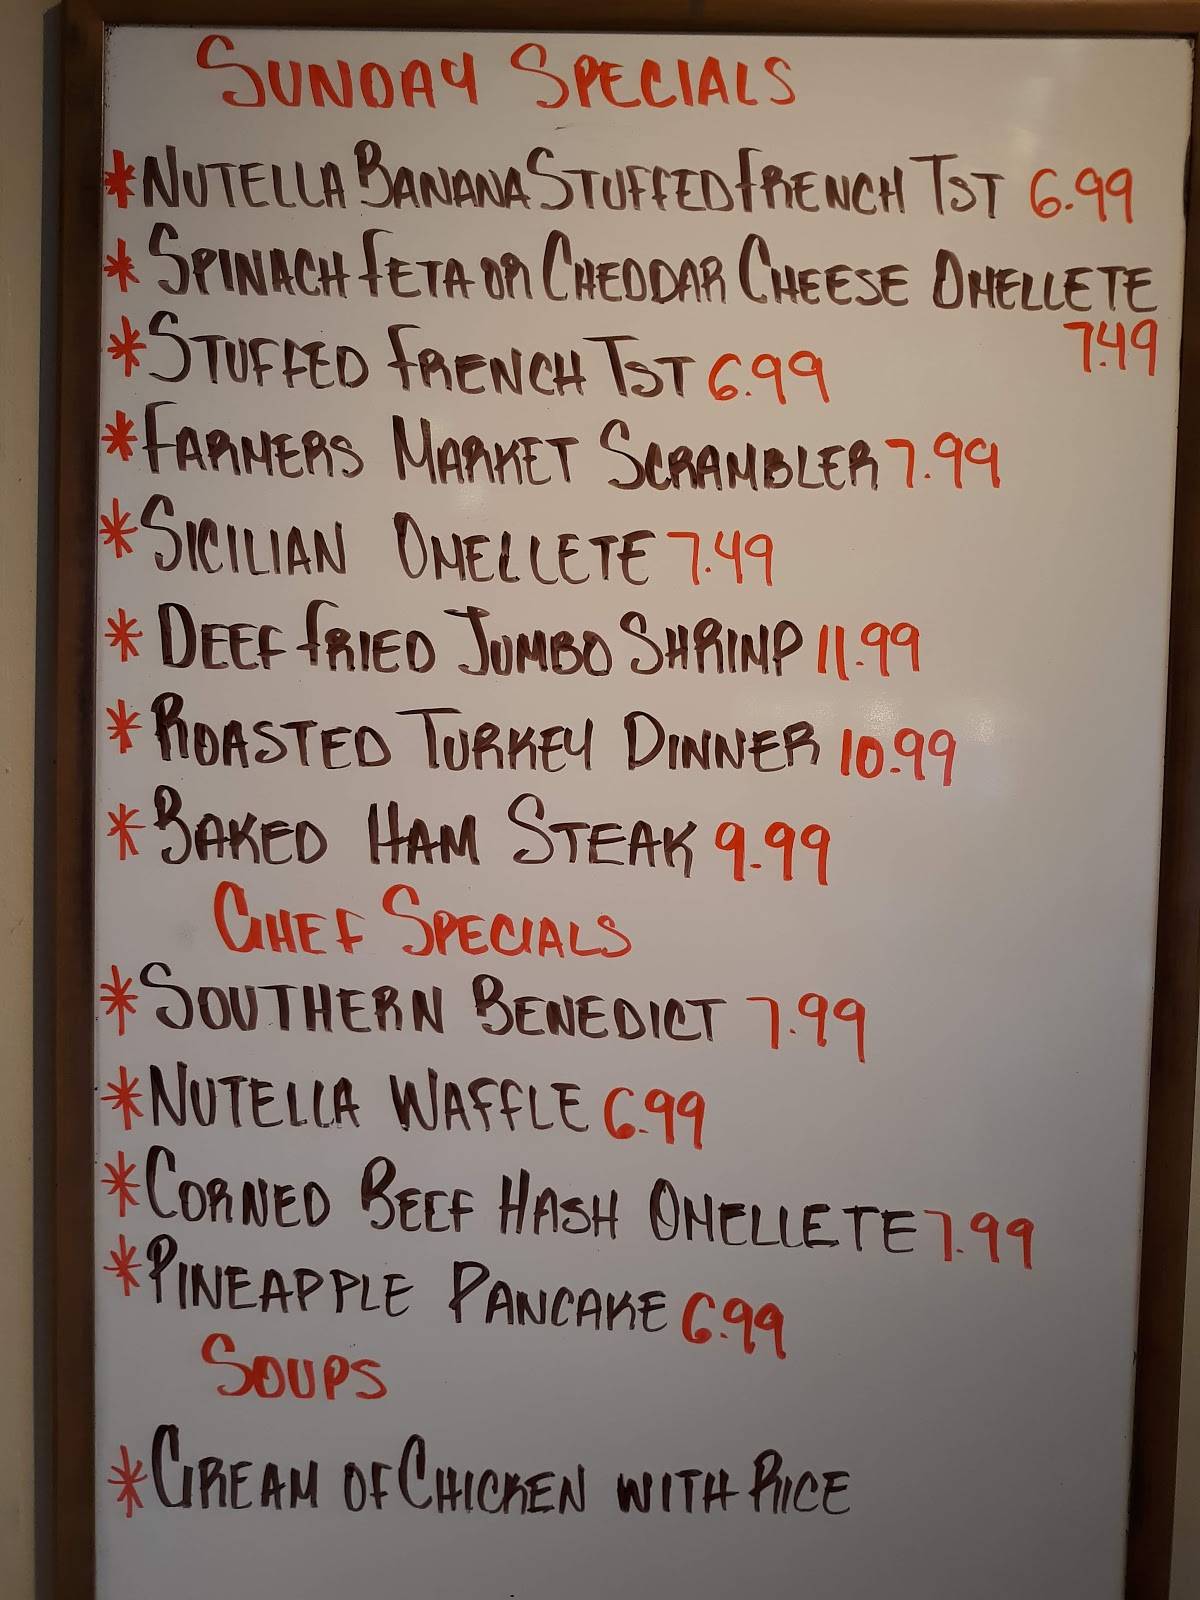 SUNDAY SPECIALS
*NUTELLA BANANA STUFFED FRENCH TST 6.99
*SPINACH FETA OR CHEDDAR CHEESE OMELLETE
7.49
*STUFFED FRENCH TST 6.99
*FARMERS MARKET SCRAMBLER 7.99
*SICILIAN OMELLETE 7.49
*DEEF FRIED JUMBO SHRIMP 11.99
*ROASTED TURKEY DINNER 10.99
*BAKED HAM STEAK 9.99
CHEF SPECIALS
*SOUTHERN BENEDICT 7.99
*NUTELLA WAFFLE 6.99
*CORNED BEEF HASH OMELLETE 7.99
*PINEAPPLE PANCAKE 6.99
SOUPS
*CREAM OF CHICKEN WITH RICE